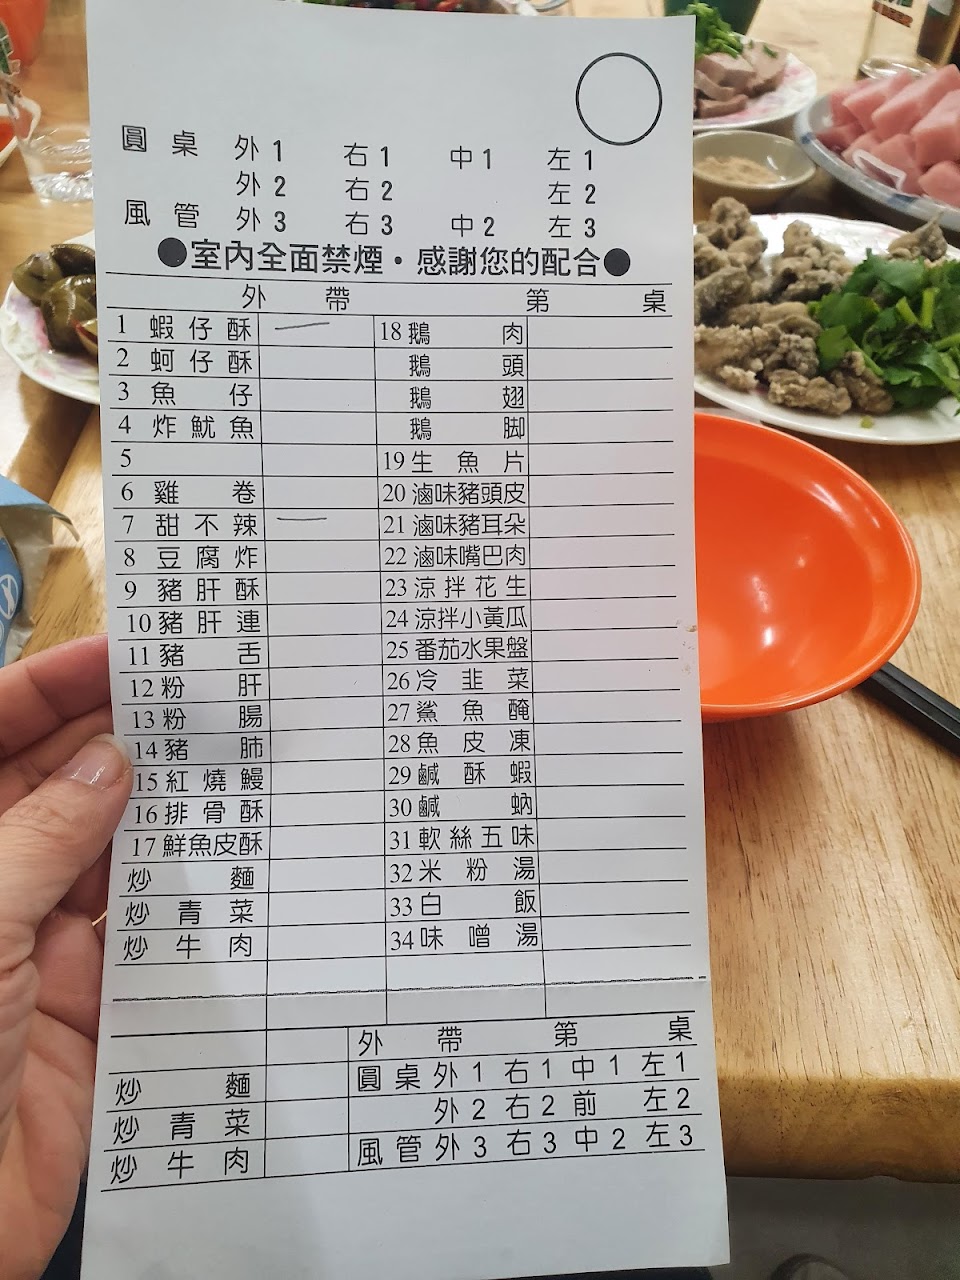 圓桌 外1 右1 中1 左1
外2 右2 左2
風管 外3 右3 中2 左3
●室內全面禁煙・感謝您的配合●
外帶 第 桌
1 蝦仔酥 18 鵝肉
2 蚵仔酥 鵝頭
3 魚仔 鵝翅
4 炸魷魚 鵝脚
5 19 生魚片
6 雞卷 20 滷味豬頭皮
7 甜不辣 21 滷味豬耳朵
8 豆腐炸 22 滷味嘴巴肉
9 豬肝酥 23 涼拌花生
10 豬肝連 24 涼拌小黃瓜
11 豬舌 25 番茄水果盤
12 粉肝 26 冷韭菜
13 粉腸 27 鯊魚醃
14 豬肺 28 魚皮凍
15 紅燒鰻 29 鹹酥蝦
16 排骨酥 30 鹹蚋
17 鮮魚皮酥 31 軟絲五味
炒麵 32 米粉湯
炒青菜 33 白飯
炒牛肉 34 味噌湯
外帶 第 桌
炒麵 圓桌 外1 右1 中1 左1
炒青菜 外2 右2 前 左2
炒牛肉 風管 外3 右3 中2 左3